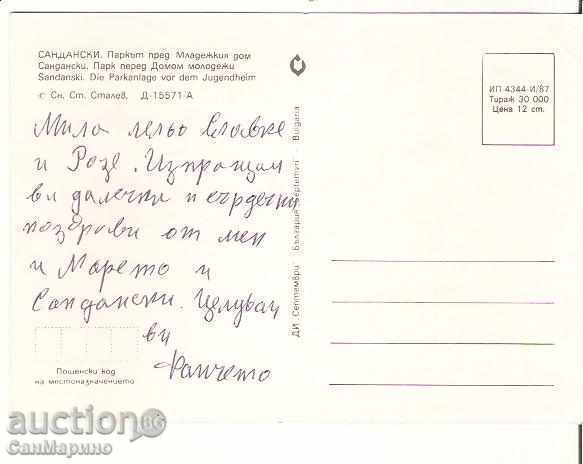 САНДАНСКИ. Паркът пред Младежкия дом
Сандански. Парк перед Домом молодежи
Sandanski. Die Parkanlage vor dem Jugendheim
с Сн. Ст. Сталев, Д-15571-А
Мила лельо Славке
и Розе. Изпращам
ви далечни и сърдечни
поздрави от мен
и Марето и
Сандански. Целувам
ви
Фанчето
Пощенски код
на местоназначението
ДИ „Септември“ България Septemvri Bulgaria
ИП 4344-И/87
Тираж 30 000
Цена 12 ст.
auction BG
СанМарино